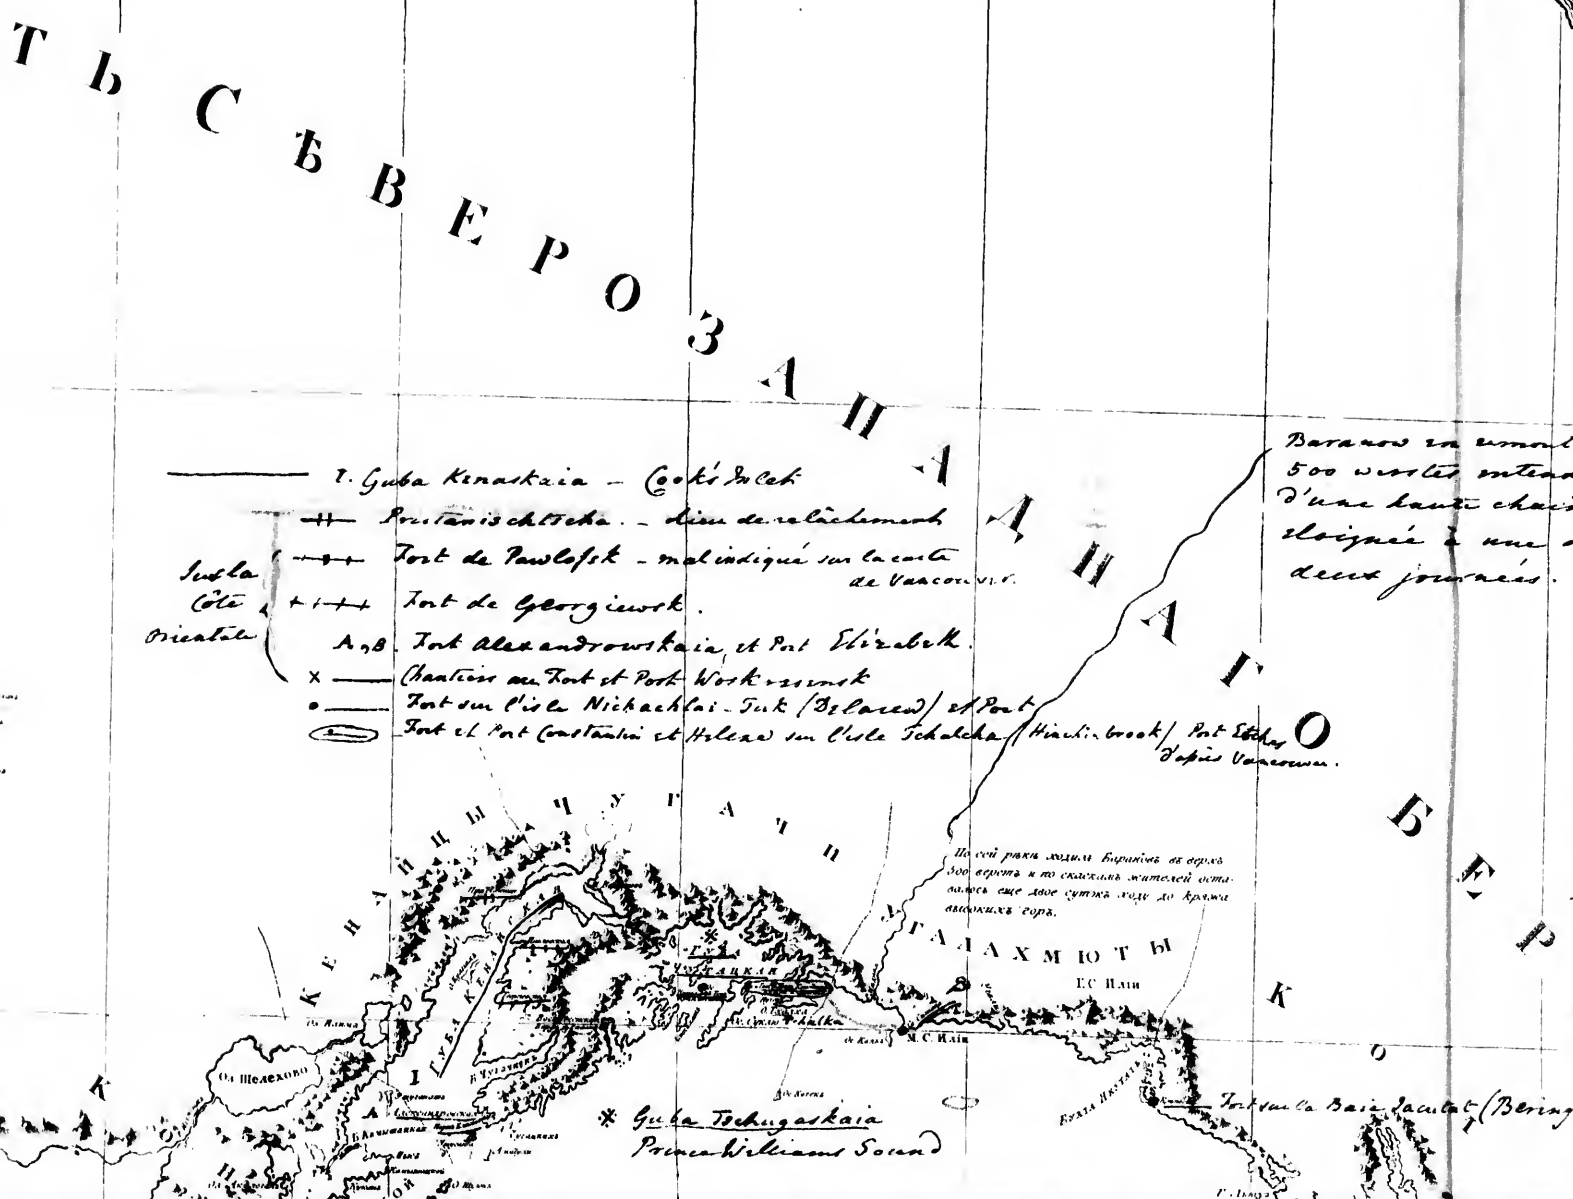 ТЬ СѢВЕРОЗАПАДНАГО БЕР
I. Guba Kenaskaia - Cook's Inlet
Pristanischtscha. - lieu de relâchement
Fort de Pawlofsk - mal indiqué sur la carte
de Vancouver.
Sur la
Côte
Orientale
Fort de Georgiewsk.
A, B. Fort Alexandrowskaia, et Port Elizabeth.
x Chantiers au Fort et Port Woskresensk
Fort sur l'isle Nichachlai-Tuk (Delarew) et Port
Fort et Port Constantin et Helene sur l'isle Tchalcha (Hinchinbrook) Port Etches
d'après Vancouver.
Baranow en remont
500 werstes entend
d'une haute chain
eloignée à une
deux journées.
КЕНАЙЦЫ
ЧУГАЧИ
По сей рѣкѣ ходилъ Барановъ въ верхъ
500 верстъ и по сказкамъ жителей оста-
валось еще двое сутокъ ходу до кряжа
высокихъ горъ.
УГАЛАХМЮТЫ
Г.С. Иліи
ГУБА КЕНАЙСКАЯ
*
ГУБА
ЧУГАЦКАЯ
B
Tchalka
М.С. Иліи
Оз. Шелехово
I
A
К
О
К
О
Бухта Якутатъ
Fort sur la Baie Jacutat (Bering
* Guba Tschugaskaia
Prince Williams Sound